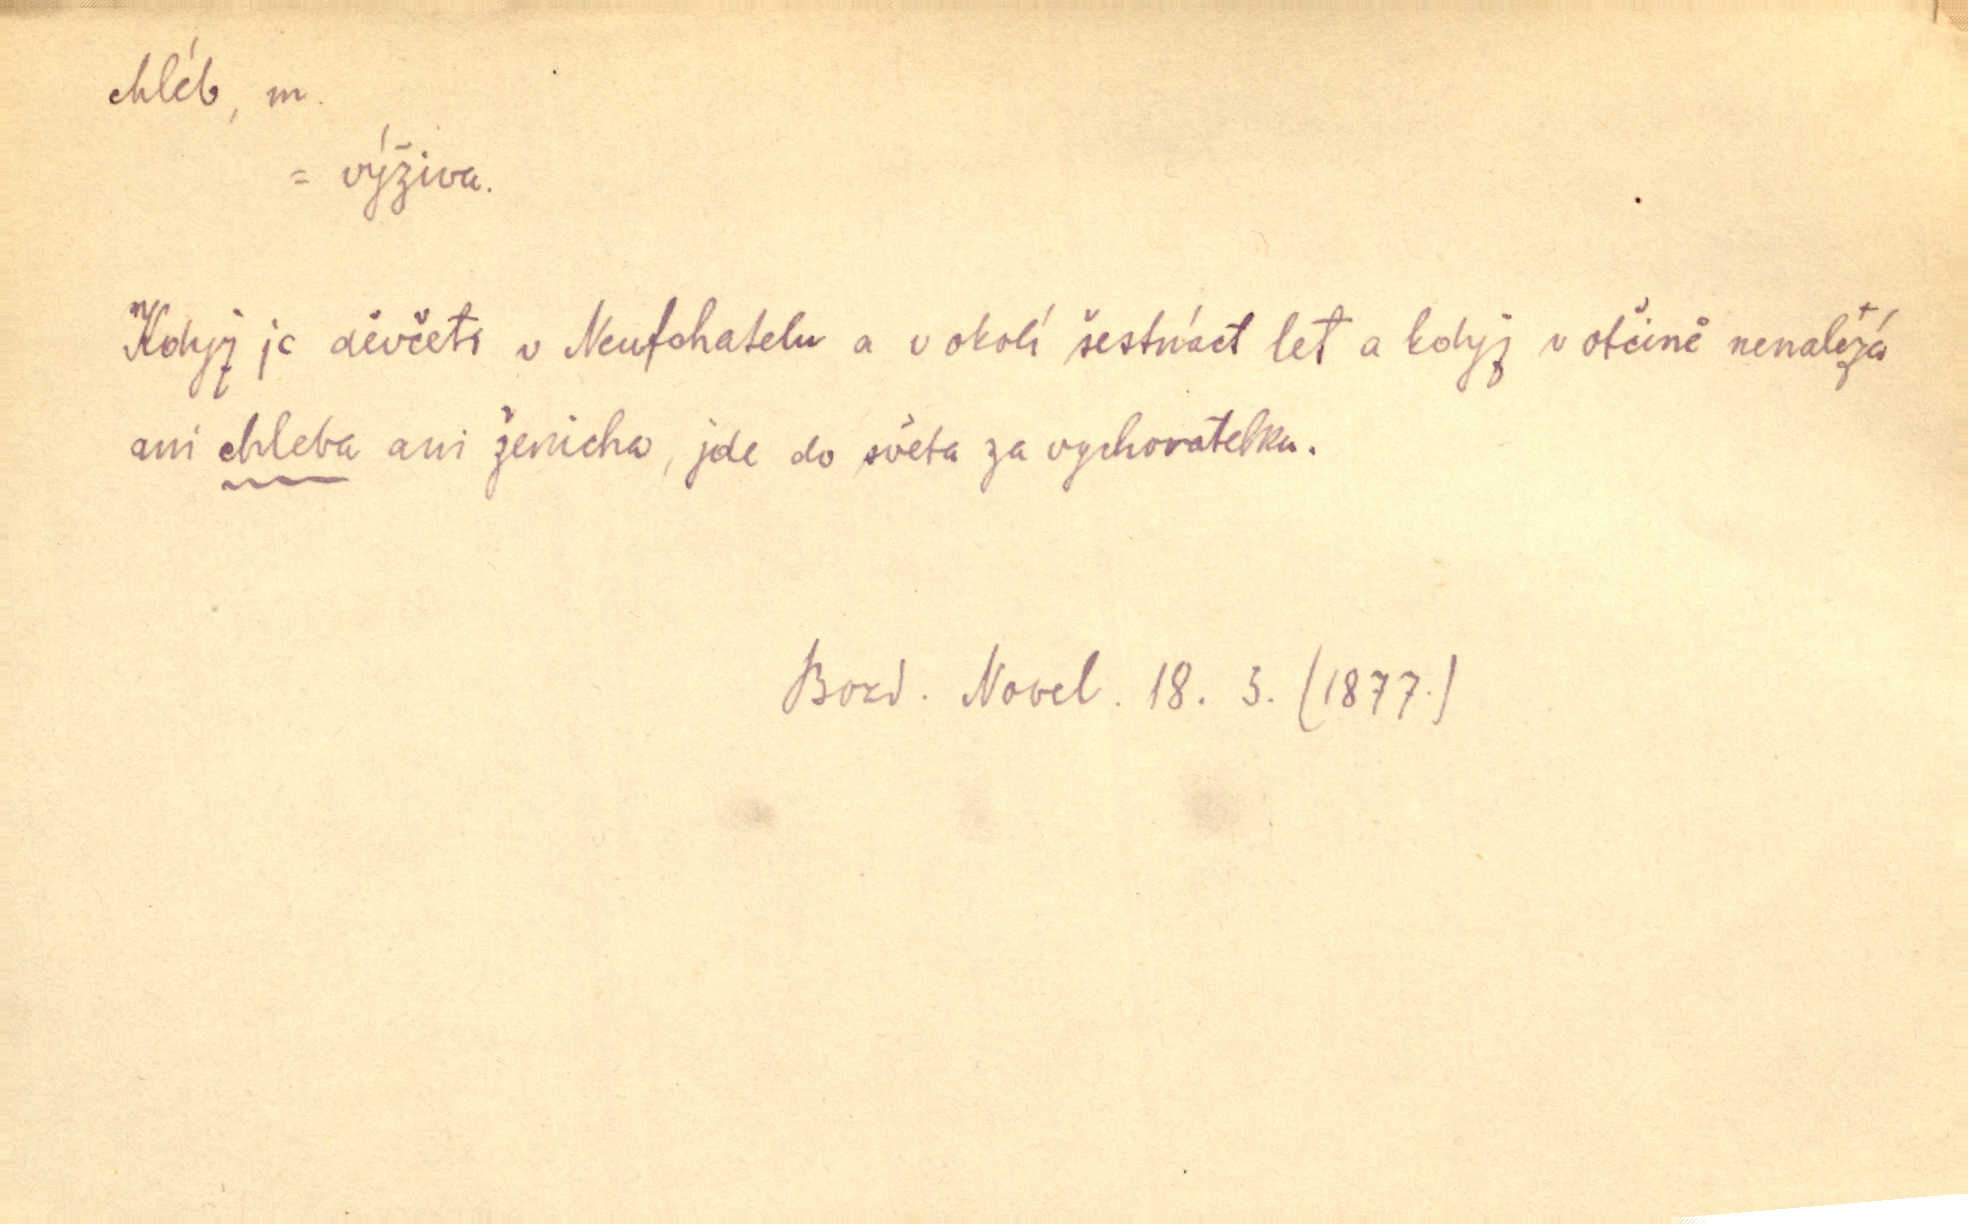 chléb, m.
= výživa.
Když je děvčeti v Neufchatelu a v okolí šestnáct let a když v otčině nenalézá
ani chleba ani ženicha, jde do světa za vychovatelku.
Bozd. Novel. 18. 3. (1877.)